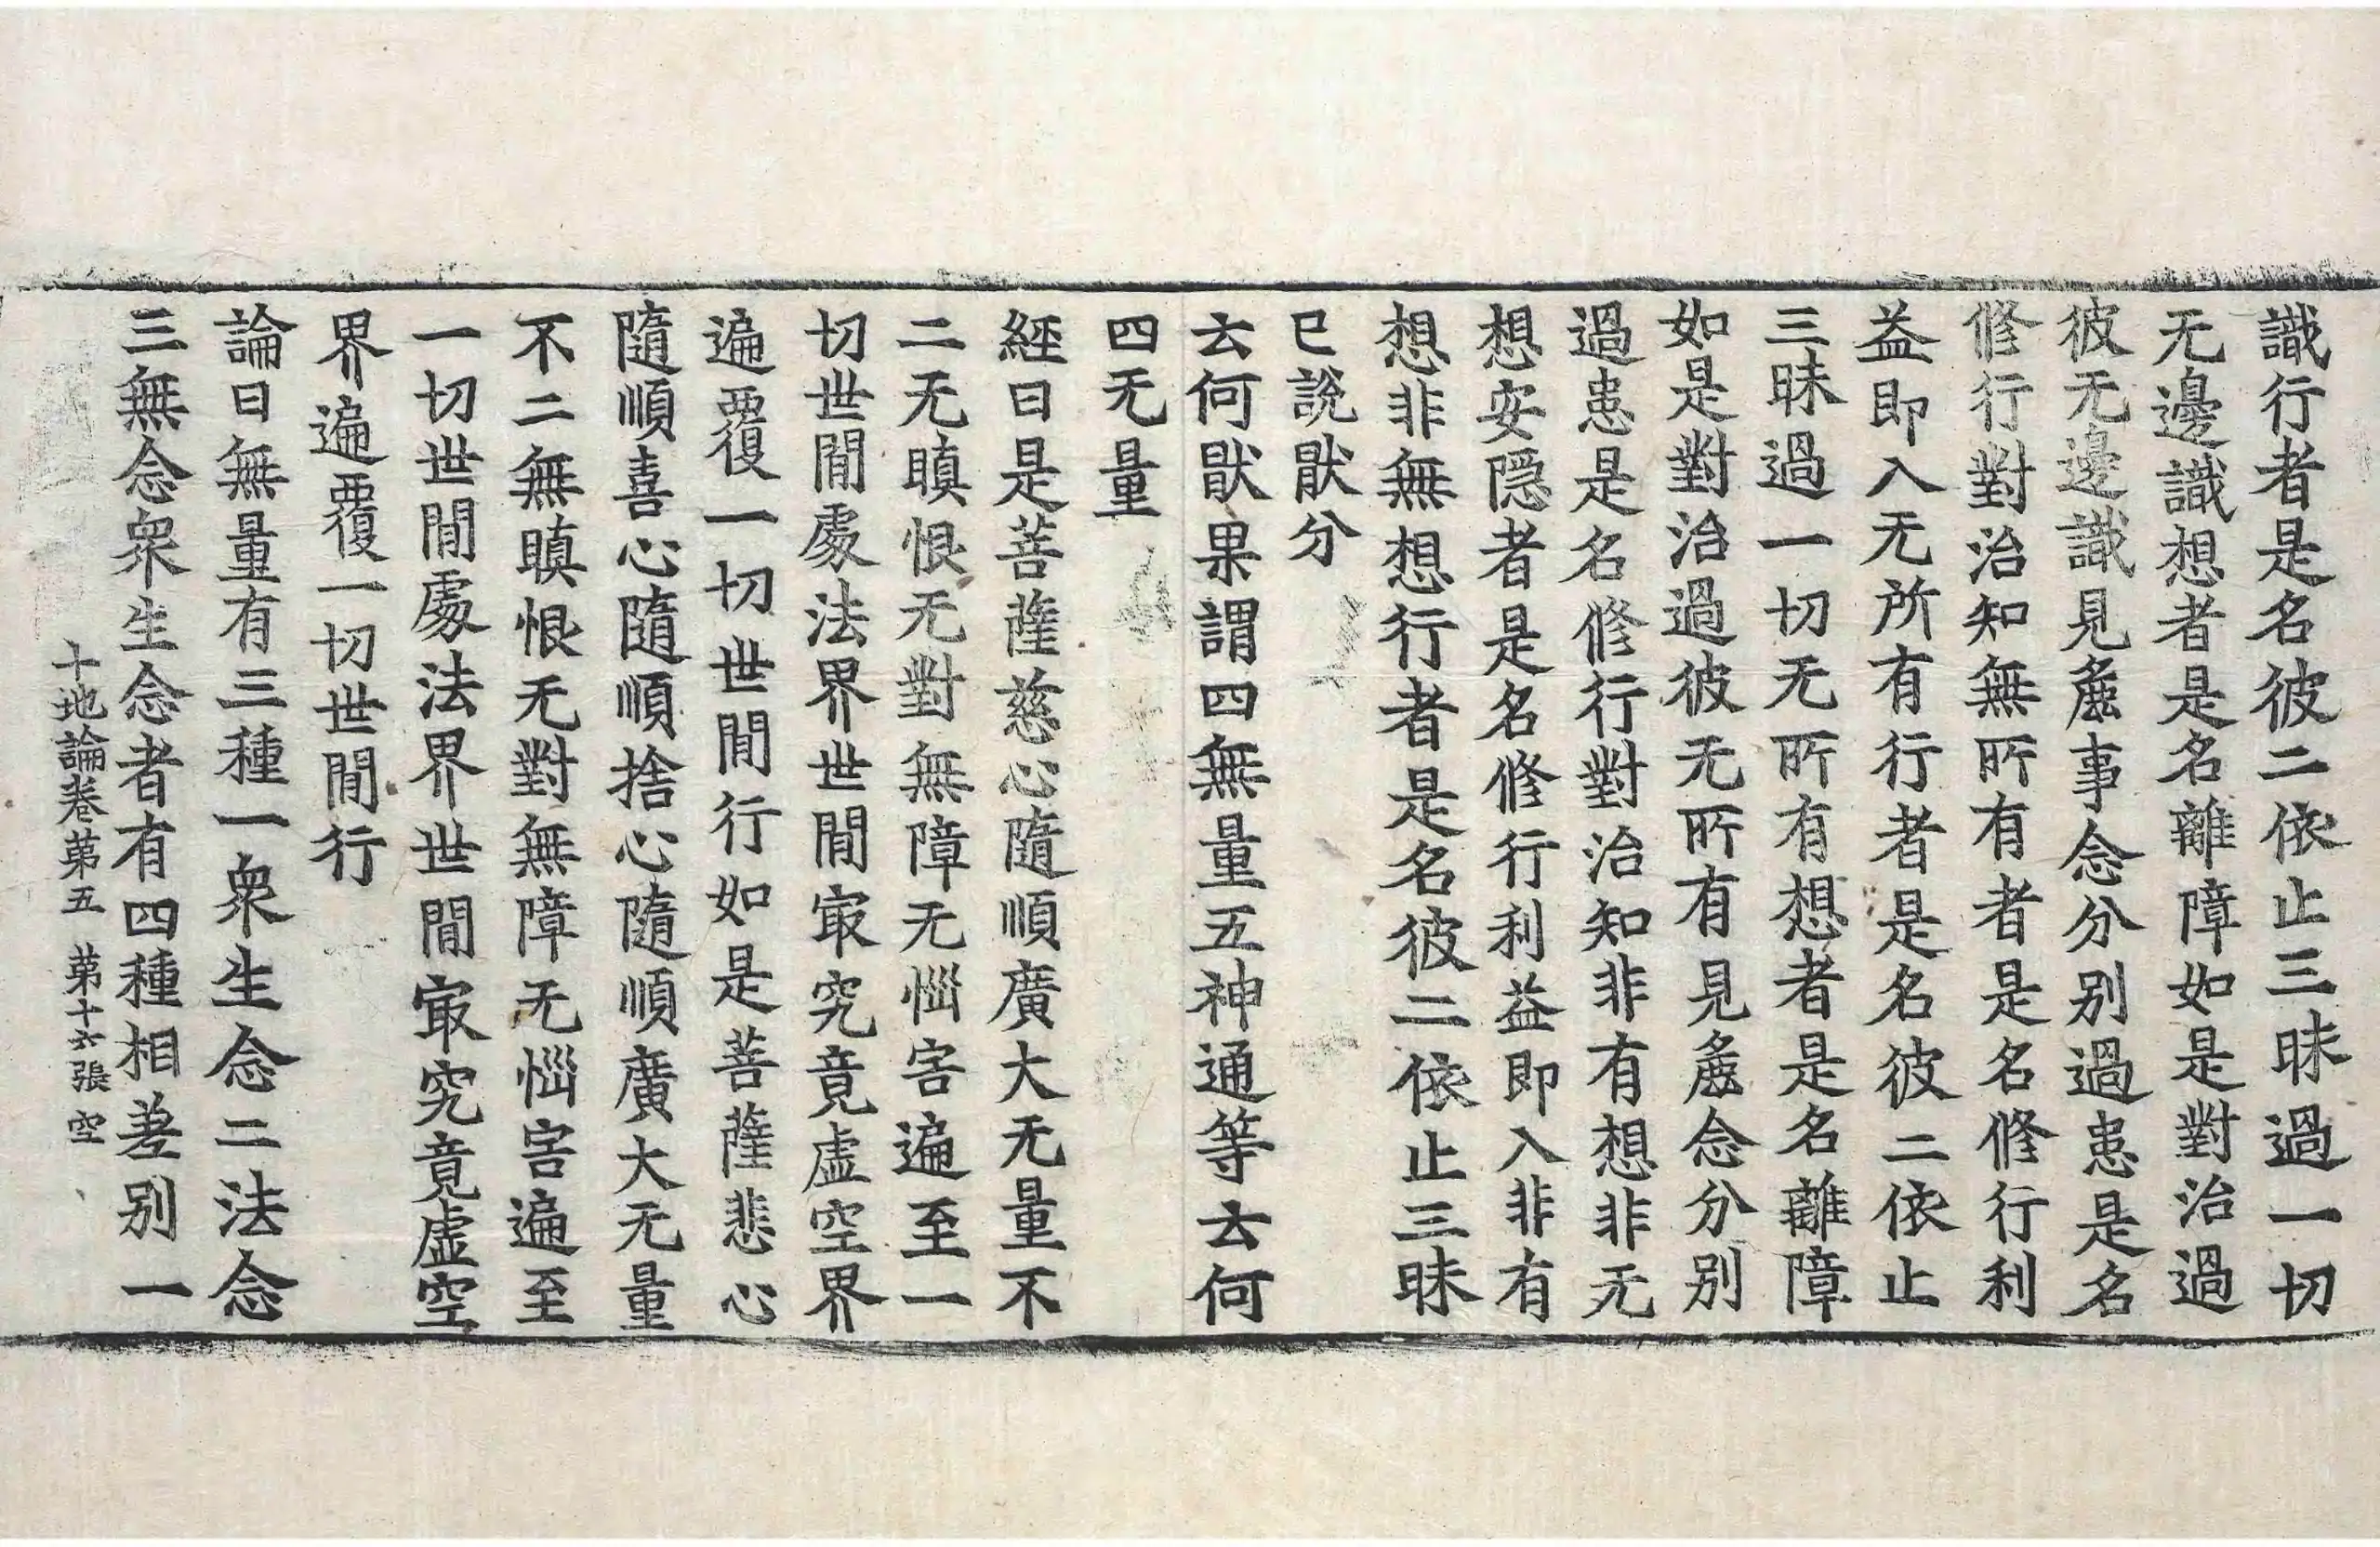 識行者是名彼二依止三昧過一切
无邊識想者是名離障如是對治過
彼无邊識見麁事念分別過患是名
修行對治知無所有者是名修行利
益即入无所有行者是名彼二依止
三昧過一切无所有想者是名離障
如是對治過彼无所有見麁念分別
過患是名修行對治知非有想非无
想安隠者是名修行利益即入非有
想非無想行者是名彼二依止三昧
已說猒分
云何猒果謂四無量五神通等云何
四无量
經曰是菩薩慈心隨順廣大无量不
二无瞋恨无對無障无惱害遍至一
切世間處法界世間㝡究竟虛空界
遍覆一切世間行如是菩薩悲心
隨順喜心隨順捨心隨順廣大无量
不二無瞋恨无對無障无惱害遍至
一切世間處法界世間㝡究竟虛空
界遍覆一切世間行
論曰無量有三種一衆生念二法念
三無念衆生念者有四種相差別一
十地論卷第五 第十六張 空